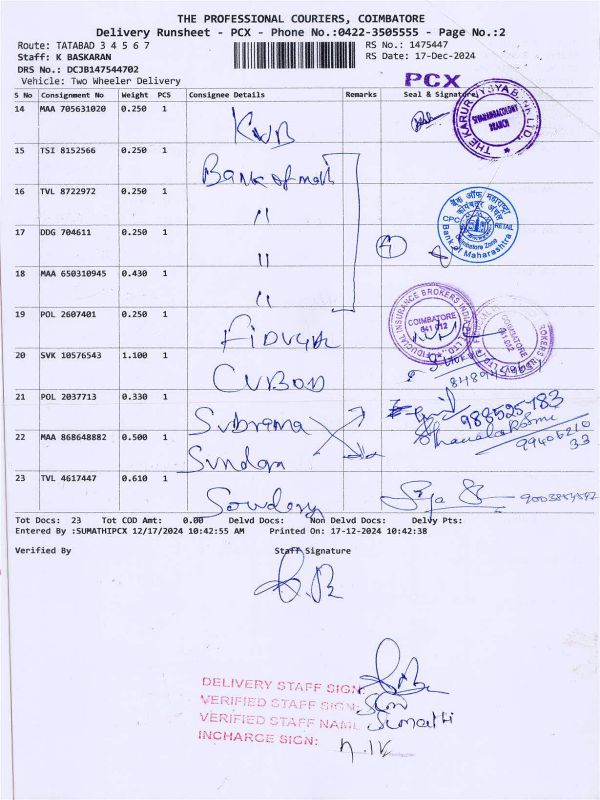 THE PROFESSIONAL COURIERS, COIMBATORE
Delivery Runsheet - PCX - Phone No.:0422-3505555 - Page No.:2
Route: TATABAD 3 4 5 6 7 RS No.: 1475447
Staff: K BASKARAN RS Date: 17-Dec-2024
DRS No.: DCJB147544702
Vehicle: Two Wheeler Delivery
PCX
S No Consignment No Weight PCS Consignee Details Remarks Seal & Signature
14 MAA 705631020 0.250 1 KVB
THE KARUR VYSYA BANK LTD
BRANCH
15 TSI 8152566 0.250 1 Bank of mah
16 TVL 8722972 0.250 1 "
बैंक ऑफ महाराष्ट्र
CPC RETAIL
Coimbatore Zone
Bank of Maharashtra
17 DDG 704611 0.250 1 " 4
18 MAA 650310945 0.430 1 "
19 POL 2607401 0.250 1
FIDUCIAL INSURANCE BROKERS INDIA
COIMBATORE
641 012
20 SVK 10576543 1.100 1
21 POL 2037713 0.330 1 Subrama
22 MAA 868648882 0.500 1 Sundar
Dhanalakshmi
99406210
33
23 TVL 4617447 0.610 1
Tot Docs: 23 Tot COD Amt: 0.00 Delvd Docs: Non Delvd Docs: Delvy Pts:
Entered By :SUMATHIPCX 12/17/2024 10:42:55 AM Printed On: 17-12-2024 10:42:38
Verified By Staff Signature
DELIVERY STAFF SIGN:
VERIFIED STAFF SIGN:
VERIFIED STAFF NAME: Sumathi
INCHARGE SIGN: